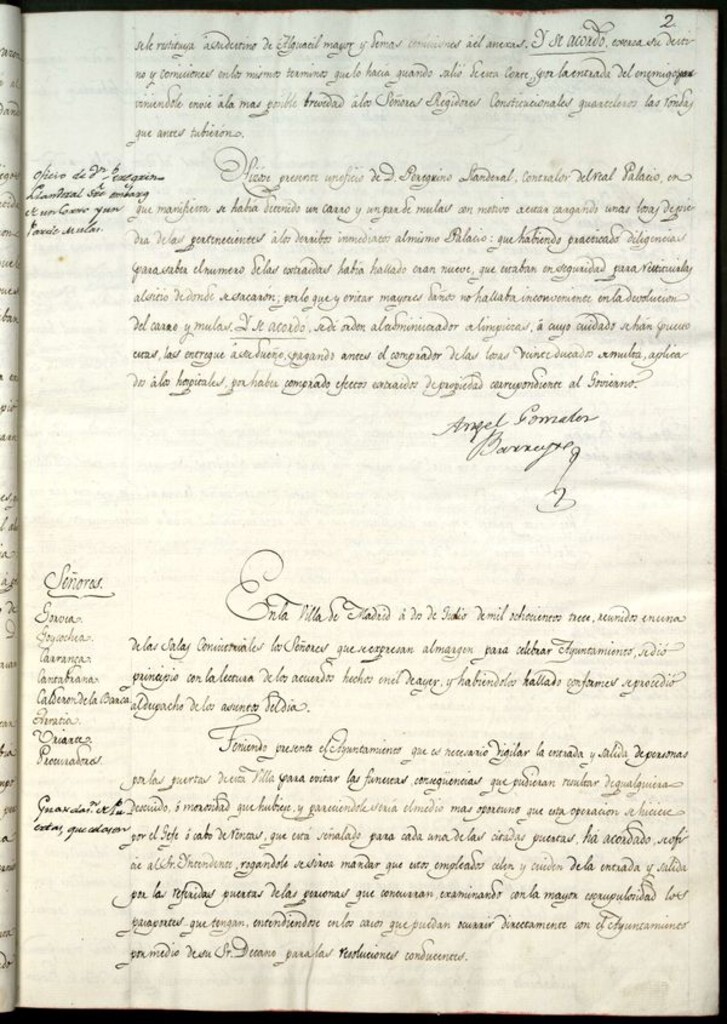 2
se le restituya a su destino de Alguacil mayor y demas comisiones á él anexas. Y se acordó, exerza su desti-
no y comisiones en los mismos terminos que lo hacia quando salió de esta Corte por la entrada del enemigo, pre-
viniendole envie á la mas posible brevedad á los Señores Regidores Constitucionales quarteleros las rondas
que antes tubieron.
Oficio de Dn. Peregrino
Llanderal sre. embargo
de un Carro y un
par de mulas.
Hizose presente un oficio de D. Peregrino Llanderal, Contralor del real Palacio, en
que manifiesta se habia detenido un carro y un par de mulas con motivo de estar cargando unas losas de pie-
dra de las pertenecientes á los derribos inmediatos al mismo Palacio: que habiendo practicado diligencias
para saber el numero de las extraidas habia hallado eran nueve, que estaban en seguridad para restituirlas
al sitio de donde se sacaron; por lo que y evitar mayores daños no hallaba inconveniente en la devolucion
del carro y mulas. Y se acordó, se dé orden al administrador de limpiezas, á cuyo cuidado se han puesto
estas, las entregue á su dueño, pagando antes el comprador de las losas veinte ducados de multa, aplica-
dos á los hospitales, por haber comprado efectos extraidos de propiedad correspondiente al Gobierno.
Angel Gonzalez
Barreyro
Señores.
Goroca
Goycochea
Carranza
Cantabrana
Calderon de la Barca
Arratia
Uriarte
Procuradores.
En la Villa de Madrid á dos de Junio de mil ochocientos trece, reunidos en una
de las Salas Consistoriales los Señores que se expresan al margen para celebrar Ayuntamiento, se dió
principio con la lectura de los acuerdos hechos en el de ayer, y habiendolos hallado conformes se procedió
al despacho de los asuntos del dia.
Guardas de Pu-
ertas, que celasen
Teniendo presente el Ayuntamiento que es necesario vigilar la entrada y salida de personas
por las puertas de esta Villa para evitar las funestas consequencias que pudieran resultar de qualquiera
descuido, ó morosidad que hubiese, y pareciendole seria el medio mas oportuno que esta operacion se hiciese
por el Gefe ó cabo de rentas, que está señalado para cada una de las citadas puertas, ha acordado, se ofi-
cie al Sr. Intendente, rogandole se sirva mandar que estos empleados celen y cuiden de la entrada y salida
por las referidas puertas de las personas que concurran, examinando con la mayor escrupulosidad los
pasaportes que tengan, entendiendose en los casos que puedan ocurrir directamente con el Ayuntamiento
por medio de su Sr. Decano para las resoluciones conducentes.